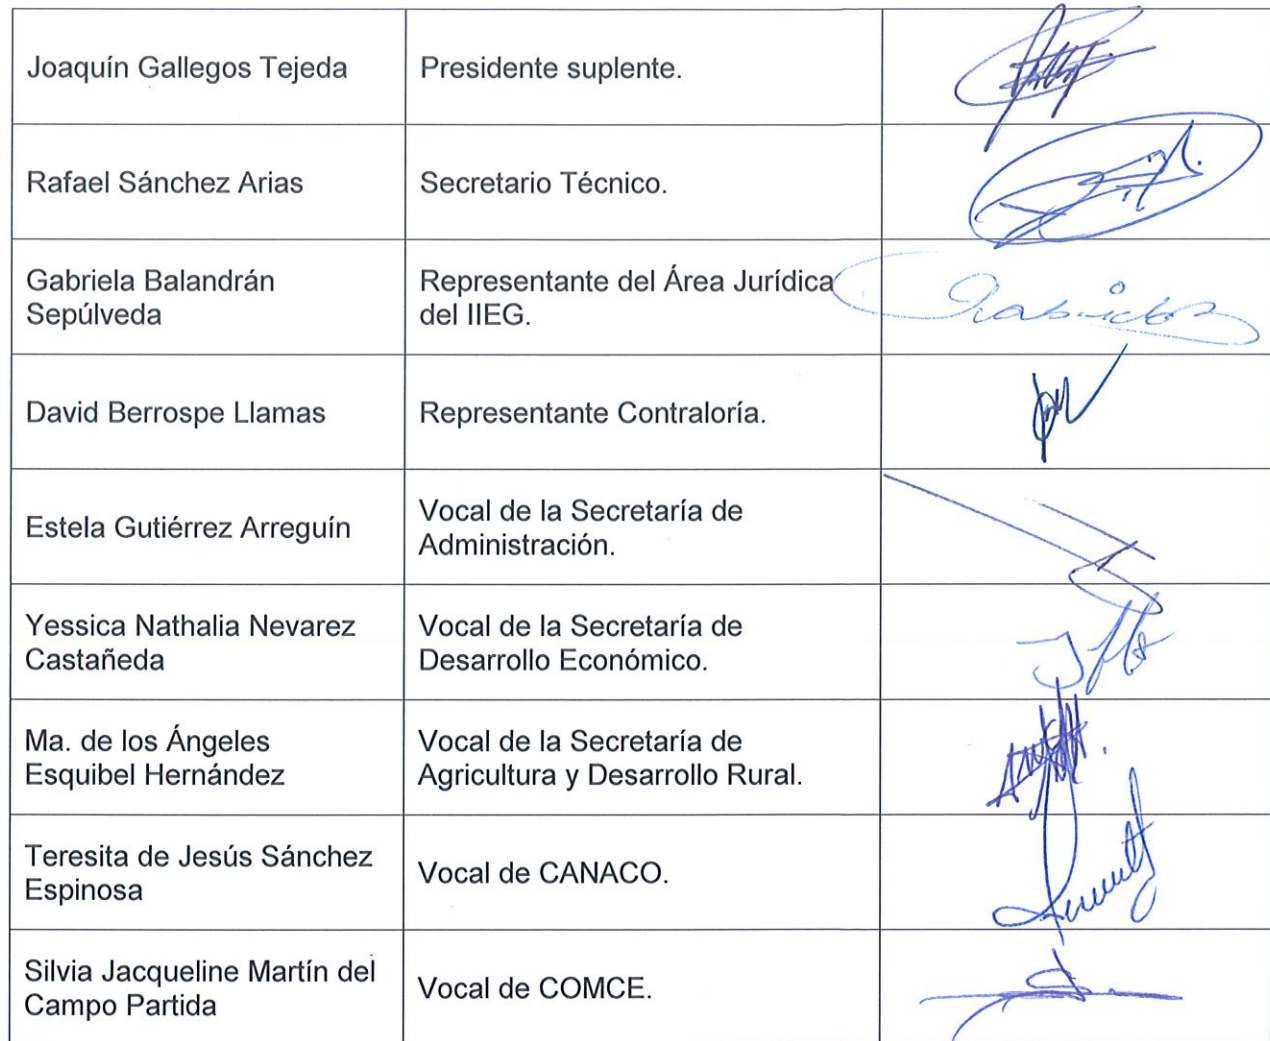 Joaquín Gallegos Tejeda
Presidente suplente.
Rafael Sánchez Arias
Secretario Técnico.
Gabriela Balandrán
Sepúlveda
Representante del Área Jurídica
del IIEG.
Gabriela
David Berrospe Llamas
Representante Contraloría.
Estela Gutiérrez Arreguín
Vocal de la Secretaría de
Administración.
Yessica Nathalia Nevarez
Castañeda
Vocal de la Secretaría de
Desarrollo Económico.
Ma. de los Ángeles
Esquibel Hernández
Vocal de la Secretaría de
Agricultura y Desarrollo Rural.
Teresita de Jesús Sánchez
Espinosa
Vocal de CANACO.
Silvia Jacqueline Martín del
Campo Partida
Vocal de COMCE.